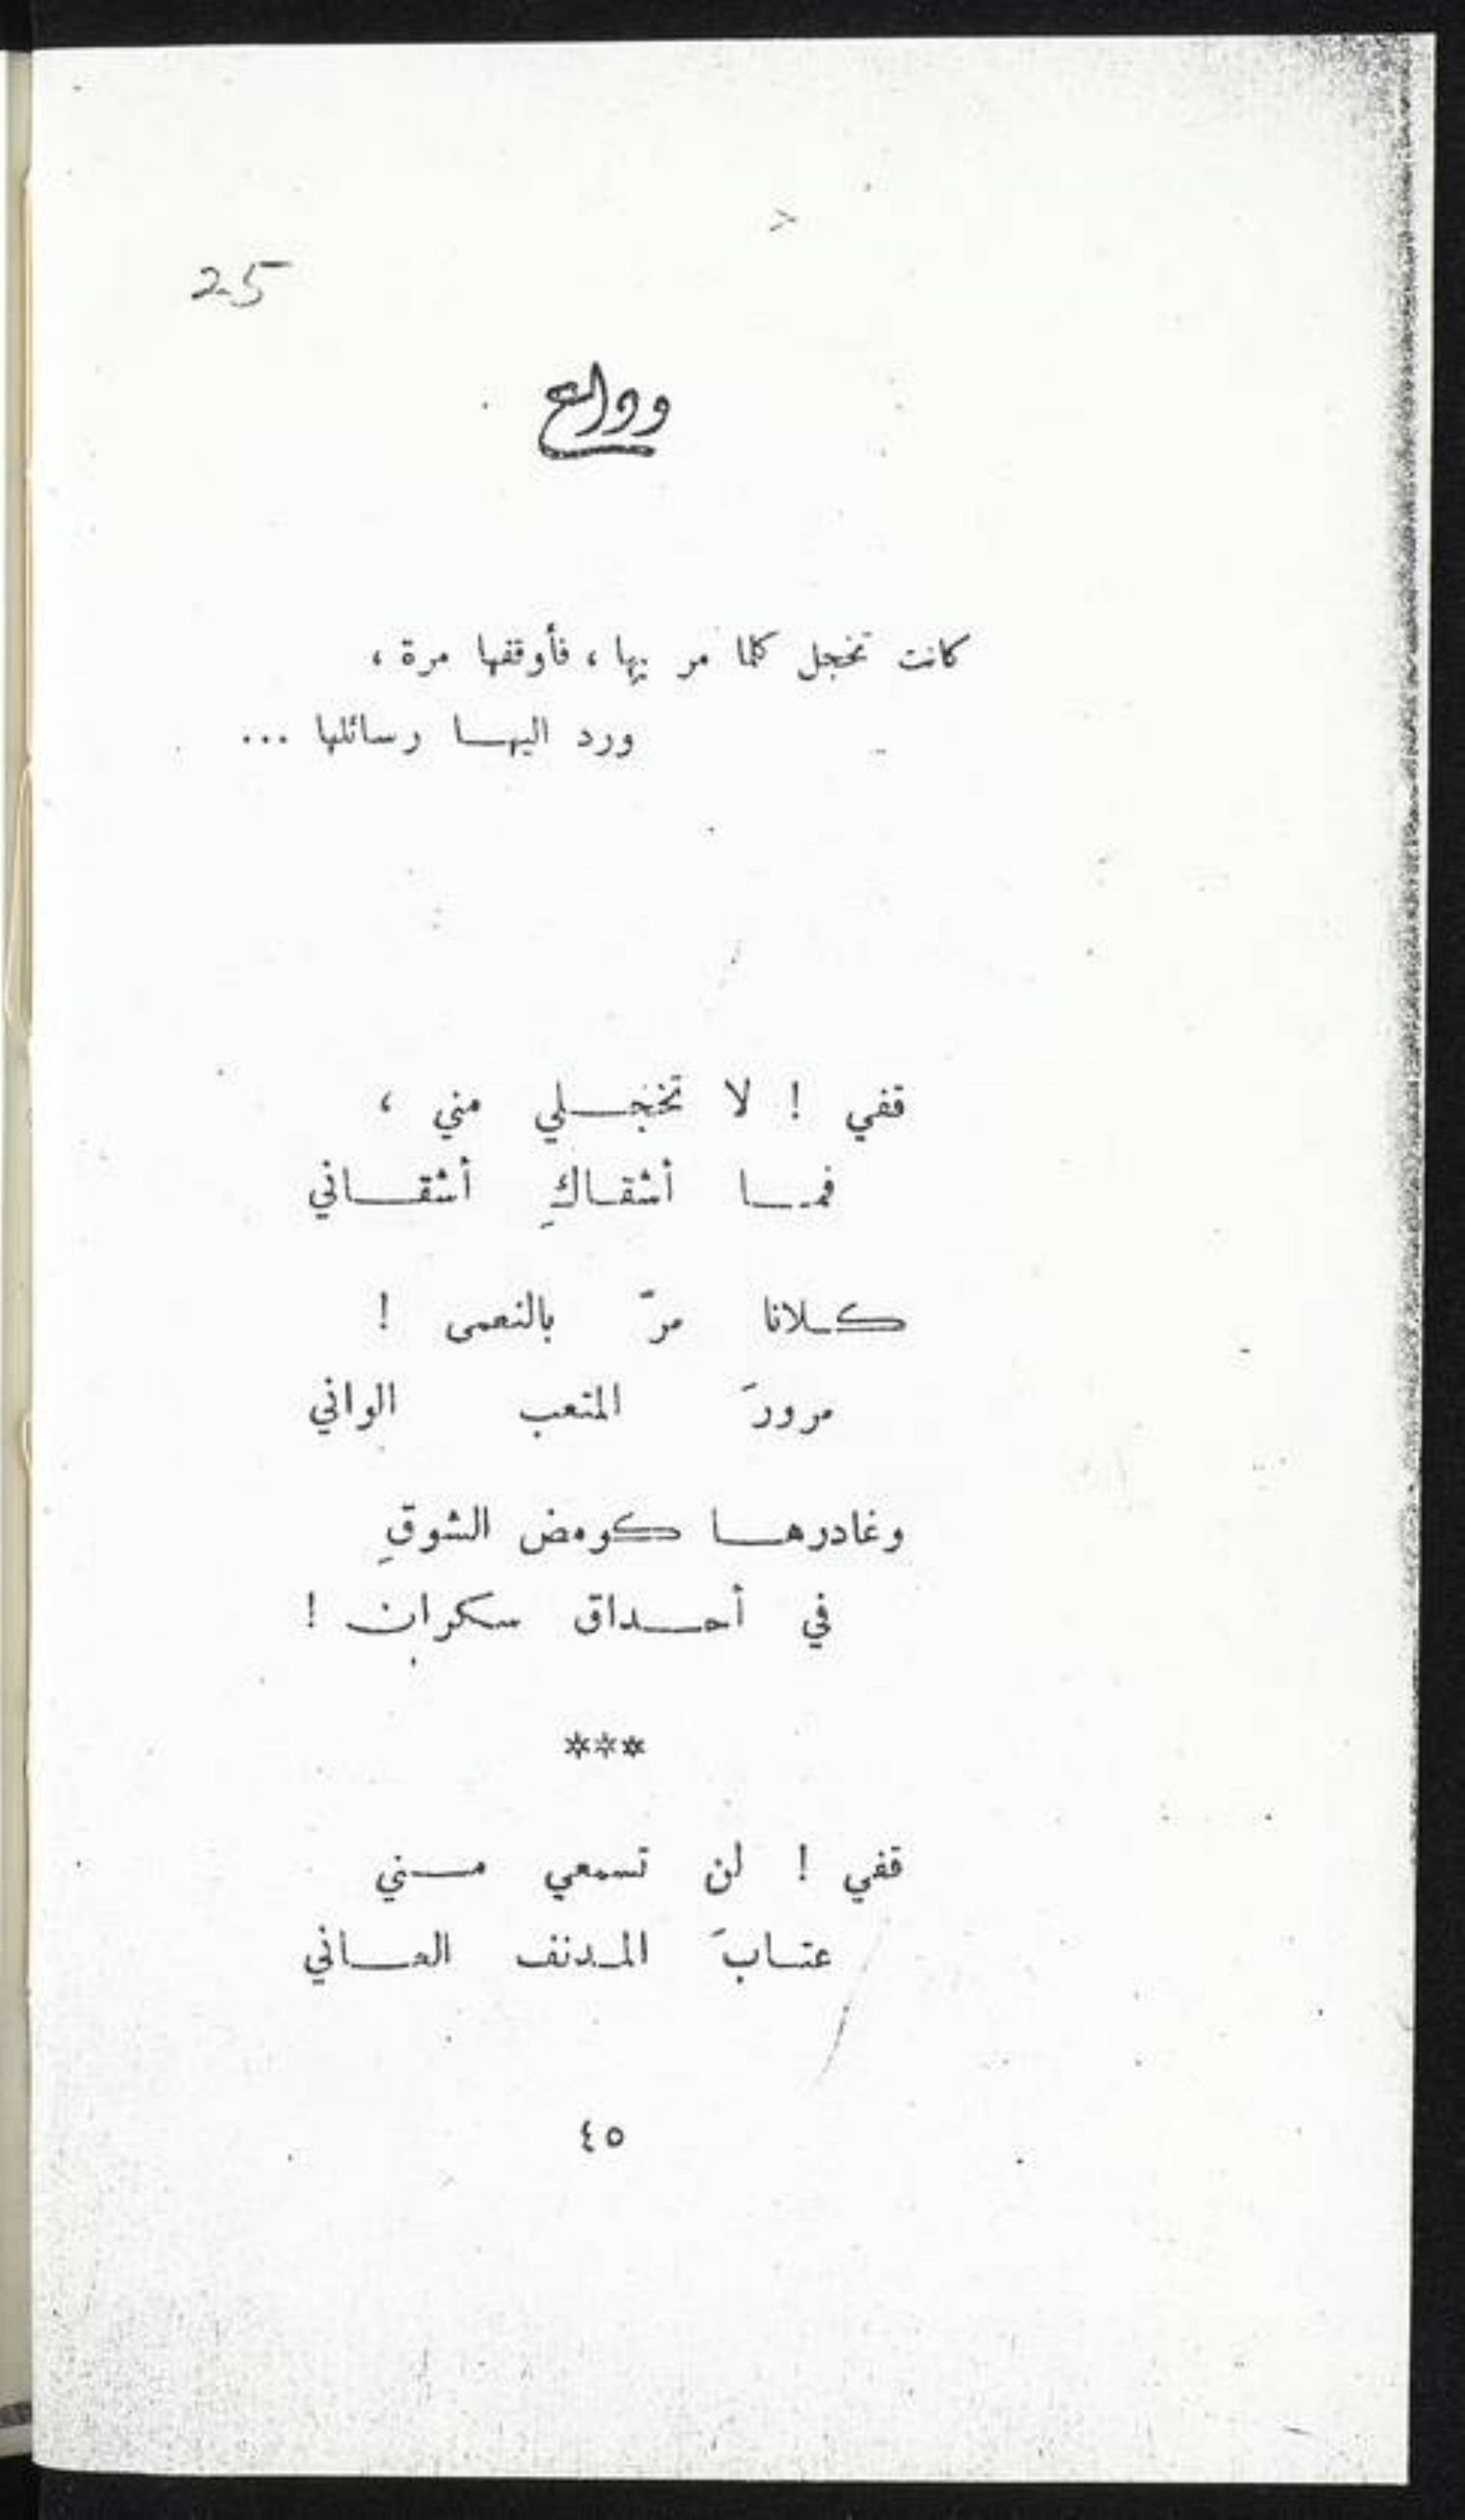 25
وداع
كانت تخجل كلما مر بها ، فأوقفها مرة ،
ورد اليها رسائلها ...
قفي ! لا تخجلي مني ،
فما أشقاكِ أشقاني
كلانا مرّ بالنعمى !
مرورَ المتعب الواني
وغادرها كومض الشوقِ
في أحداق سكران !
***
قفي ! لن تسمعي مني
عتابَ المدنف العاني
٤٥